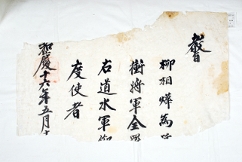 敎旨
柳相燁爲折
衝將軍全羅
右道水軍
度使者
嘉慶十六年五月